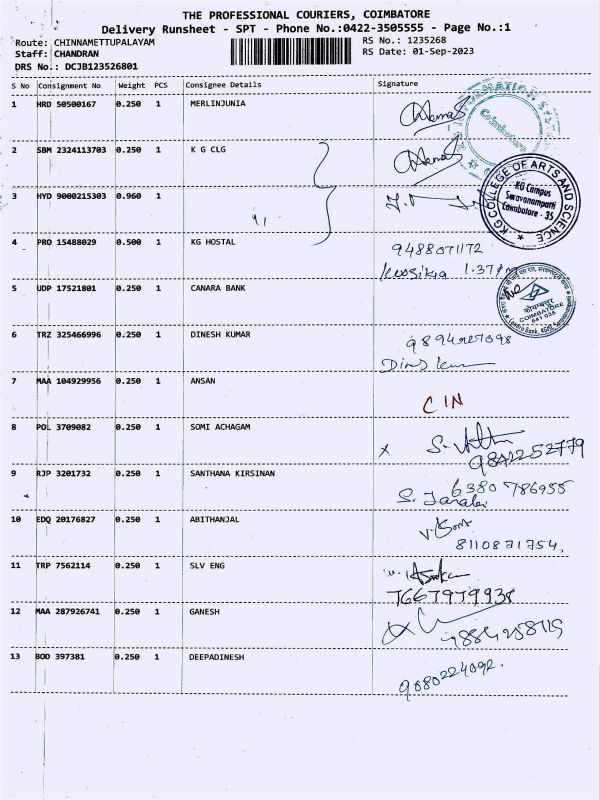 THE PROFESSIONAL COURIERS, COIMBATORE
Delivery Runsheet - SPT - Phone No.:0422-3505555 - Page No.:1
Route: CHINNAMETTUPALAYAM RS No.: 1235268
Staff: CHANDRAN RS Date: 01-Sep-2023
DRS No.: DCJB123526801
S No Consignment No Weight PCS Consignee Details Signature
1 HRD 50500167 0.250 1 MERLINJUNIA
2 SBM 2324113703 0.250 1 K G CLG
3 HYD 9000215303 0.960 1
KG COLLEGE OF ARTS AND SCIENCE
KG Campus
Saravanampatti
Coimbatore - 35
4 PRO 15488029 0.500 1 KG HOSTAL
9488071172
5 UDP 17521801 0.250 1 CANARA BANK
COIMBATORE
641 035
6 TRZ 325466996 0.250 1 DINESH KUMAR
7 MAA 104929956 0.250 1 ANSAN
CIN
8 POL 3709082 0.250 1 SOMI ACHAGAM
9842252779
9 RJP 3201732 0.250 1 SANTHANA KIRSINAN
6380 786955
10 EDQ 20176827 0.250 1 ABITHANJAL
8110871754.
11 TRP 7562114 0.250 1 SLV ENG
7667979938
12 MAA 287926741 0.250 1 GANESH
13 BOD 397381 0.250 1 DEEPADINESH
9080224092.